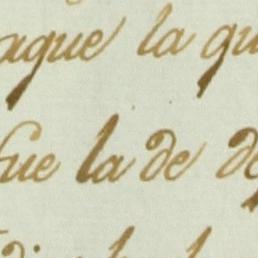 aque la qu
fue la de de